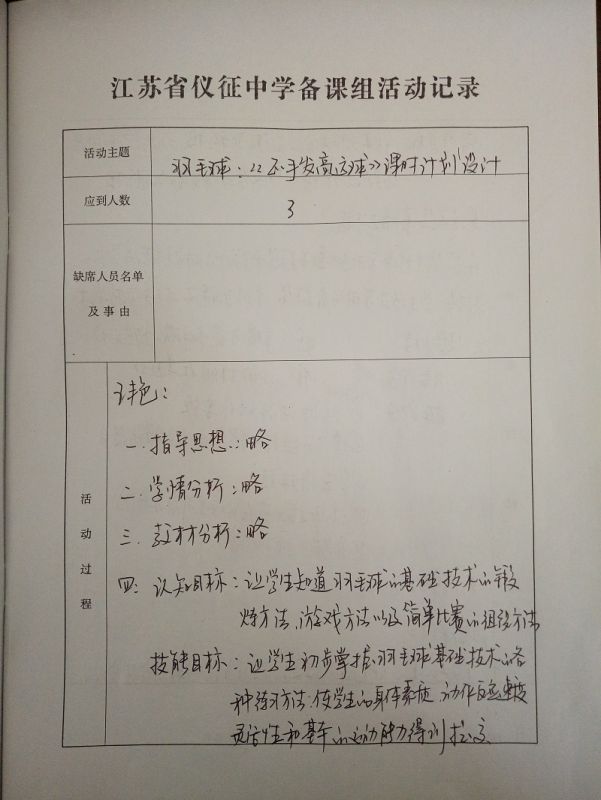 江苏省仪征中学备课组活动记录
活动主题
羽毛球：《正手发高远球》课时计划设计
应到人数
3
缺席人员名单
及事由
活动过程
一.指导思想：略
二.学情分析：略
三.教材分析：略
四：认知目标：让学生知道羽毛球的基础技术的锻
炼方法、游戏方法以及简单比赛的组织方法
技能目标：让学生初步掌握羽毛球基础技术的各
种练习方法.使学生的身体素质、动作反应速度
灵活性和基本的运动能力得到提高